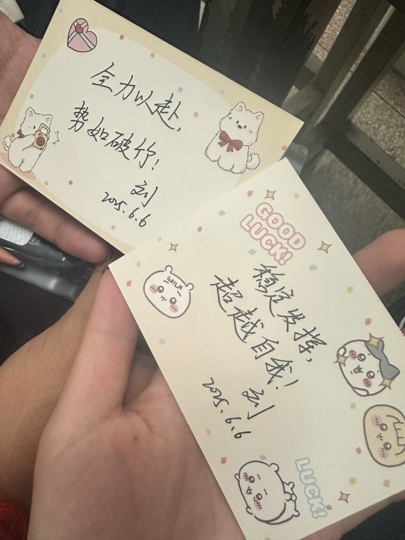 全力以赴,
势如破竹!
刘
2025.6.6
GOOD
LUCK!
稳定发挥,
超越自我!
刘
2025.6.6
LUCK!